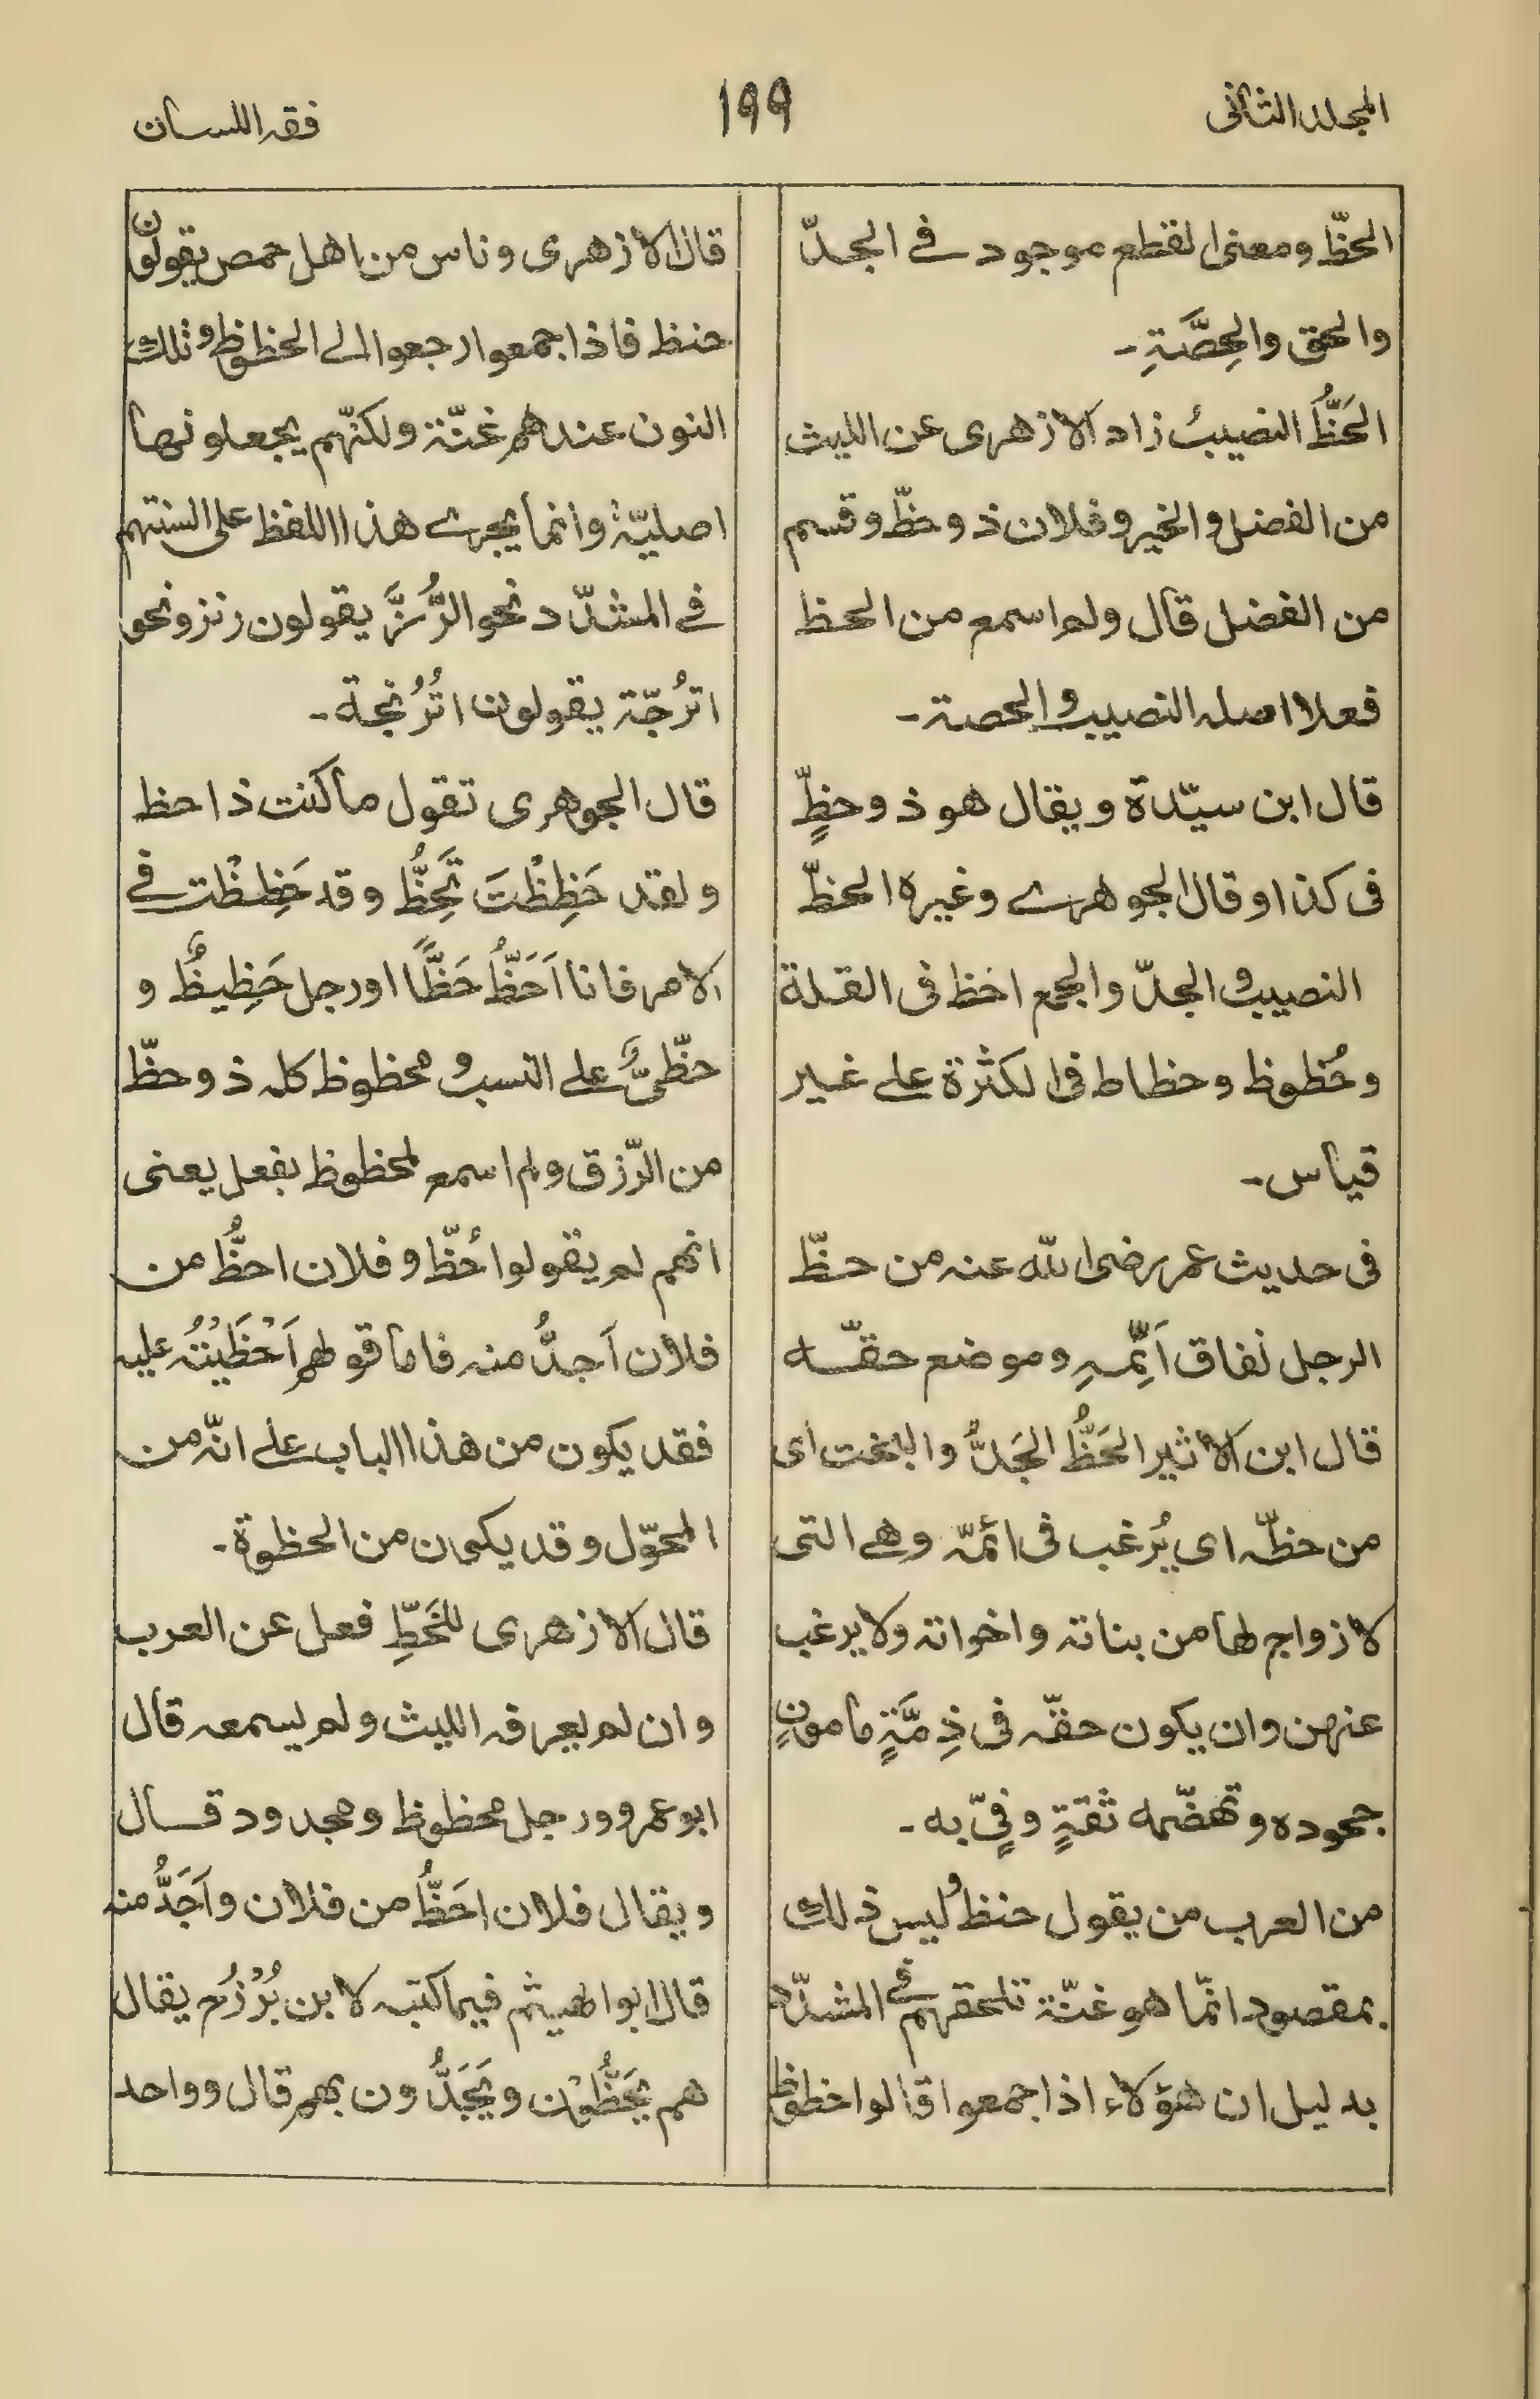 المجلد الثانى
١٩٩
فقه اللسان
الحظّ ومعنى القطع موجود فے الجدّ
والحق والحِصَّةِ ـ
الحَظُّ النصيبُ زاد الازهرى عن الليث
من الفضل والخير وفلان ذو حظّ وقسم
من الفضل قال ولم اسمع من الحظ
فعلا اصله النصيب والحصة ـ
قال ابن سيّدة ويقال هو ذو حظٍّ
فى كذا وقال الجوهرے وغيره الحظّ
النصيب والجدّ والجمع احظ فى القلة
وحُظوظ وحظاظ فى الكثرة علے غير
قياس ـ
فى حديث عمر رضى الله عنه من حظّ
الرجل نفاق اَيِّمِهِ وموضع حقّه
قال ابن الاثير الحَظُّ الجَدُّ والبخت اى
من حظّه اى يُرغب فى ائمّه وهے التى
لا زواج لها من بناته واخواته ولا يرغب
عنهن وان يكون حقّه فى ذِمَّةٍ مامونٍ
جحوده وتهضّمه ثقةٍ وفىٍّ به ـ
من العرب من يقول حنظ وليس ذلك
بمقصود انّما هو غنّة تلحقهم فے المشدّد
بدليل ان هؤلاء اذا جمعوا قالوا حظوظ
قال الازهرى وناس من اهل حمص يقولون
حنظ فاذا جمعوا رجعوا الے الحظوظ وتلك
النون عندهم غنّة ولكنّهم يجعلونها
اصليّة وانما يجرے هذا اللفظ على السنتهم
فے المشدّد نحو الرُّزَّ يقولون رنز ونحو
اترُجّة يقولون اتُرُنجة ـ
قال الجوهرى تقول ما كنت ذا حظ
ولقد حَظِظْتَ تَحَظُّ وقد حَظِظْت فے
الامر فانا اَحَظُّ حَظًّا اورجل حَظِيظٌ و
حظّىٌّ علے النسب ومحظوظ كله ذو حظّ
من الرّزق ولم اسمع لمحظوظ بفعل يعنى
انهم لم يقولوا حُظّ وفلان احظُّ من
فلان اَجدُّ منه فاما قولهم اَحْظَيْتُه عليه
فقد يكون من هذا الباب علے انّه من
المحوّل وقد يكون من الحظوة ـ
قال الازهرى للحَظِّ فعل عن العرب
وان لم يعرفه الليث ولم يسمعه قال
ابو عمرو ورجل محظوظ ومجدود قال
ويقال فلان احَظُّ من فلان واَجَدُّ منه
قال ابوالهيثم فيما كتبه لابن بُزْرُج يقال
هم يَحَظُّوْن ويَجَدُّون بهم قال وواحد